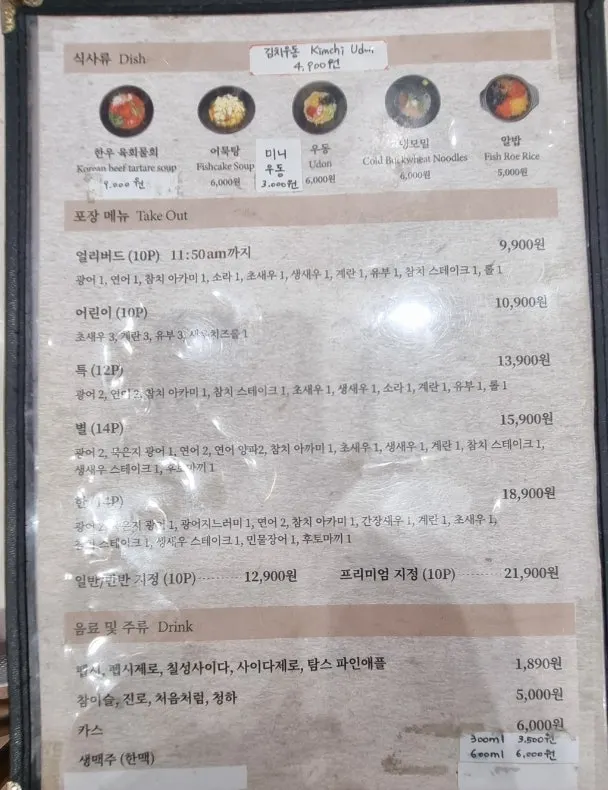 식사류 Dish
김치우동 Kimchi Udon
4,900원
한우 육회물회
Korean beef tartare soup
9.000원
어묵탕
Fishcake Soup
6,000원
미니
우동
3.000원
우동
Udon
6,000원
냉모밀
Cold Buckwheat Noodles
6,000원
알밥
Fish Roe Rice
5,000원
포장 메뉴 Take Out
얼리버드 (10P) 11:50am까지 9,900원
광어 1, 연어 1, 참치 아카미 1, 소라 1, 초새우 1, 생새우 1, 계란 1, 유부 1, 참치 스테이크 1, 롤 1
어린이 (10P) 10,900원
초새우 3, 계란 3, 유부 3, 새우치즈롤 1
특 (12P) 13,900원
광어 2, 연어 2, 참치 아카미 1, 참치 스테이크 1, 초새우 1, 생새우 1, 소라 1, 계란 1, 유부 1, 롤 1
별 (14P) 15,900원
광어 2, 묵은지 광어 1, 연어 2, 연어 양파2, 참치 아까미 1, 초새우 1, 생새우 1, 계란 1, 참치 스테이크 1,
생새우 스테이크 1, 후토마끼 1
한 (14P) 18,900원
광어 2, 묵은지 광어 1, 광어지느러미 1, 연어 2, 참치 아카미 1, 간장새우 1, 계란 1, 초새우 1,
스테이크 1, 생새우 스테이크 1, 민물장어 1, 후토마끼 1
일반/반반 지정 (10P) 12,900원 프리미엄 지정 (10P) 21,900원
음료 및 주류 Drink
펩시, 펩시제로, 칠성사이다, 사이다제로, 탐스 파인애플 1,890원
참이슬, 진로, 처음처럼, 청하 5,000원
카스 6,000원
생맥주 (한맥) 300ml 3.500원
600ml 6.000원